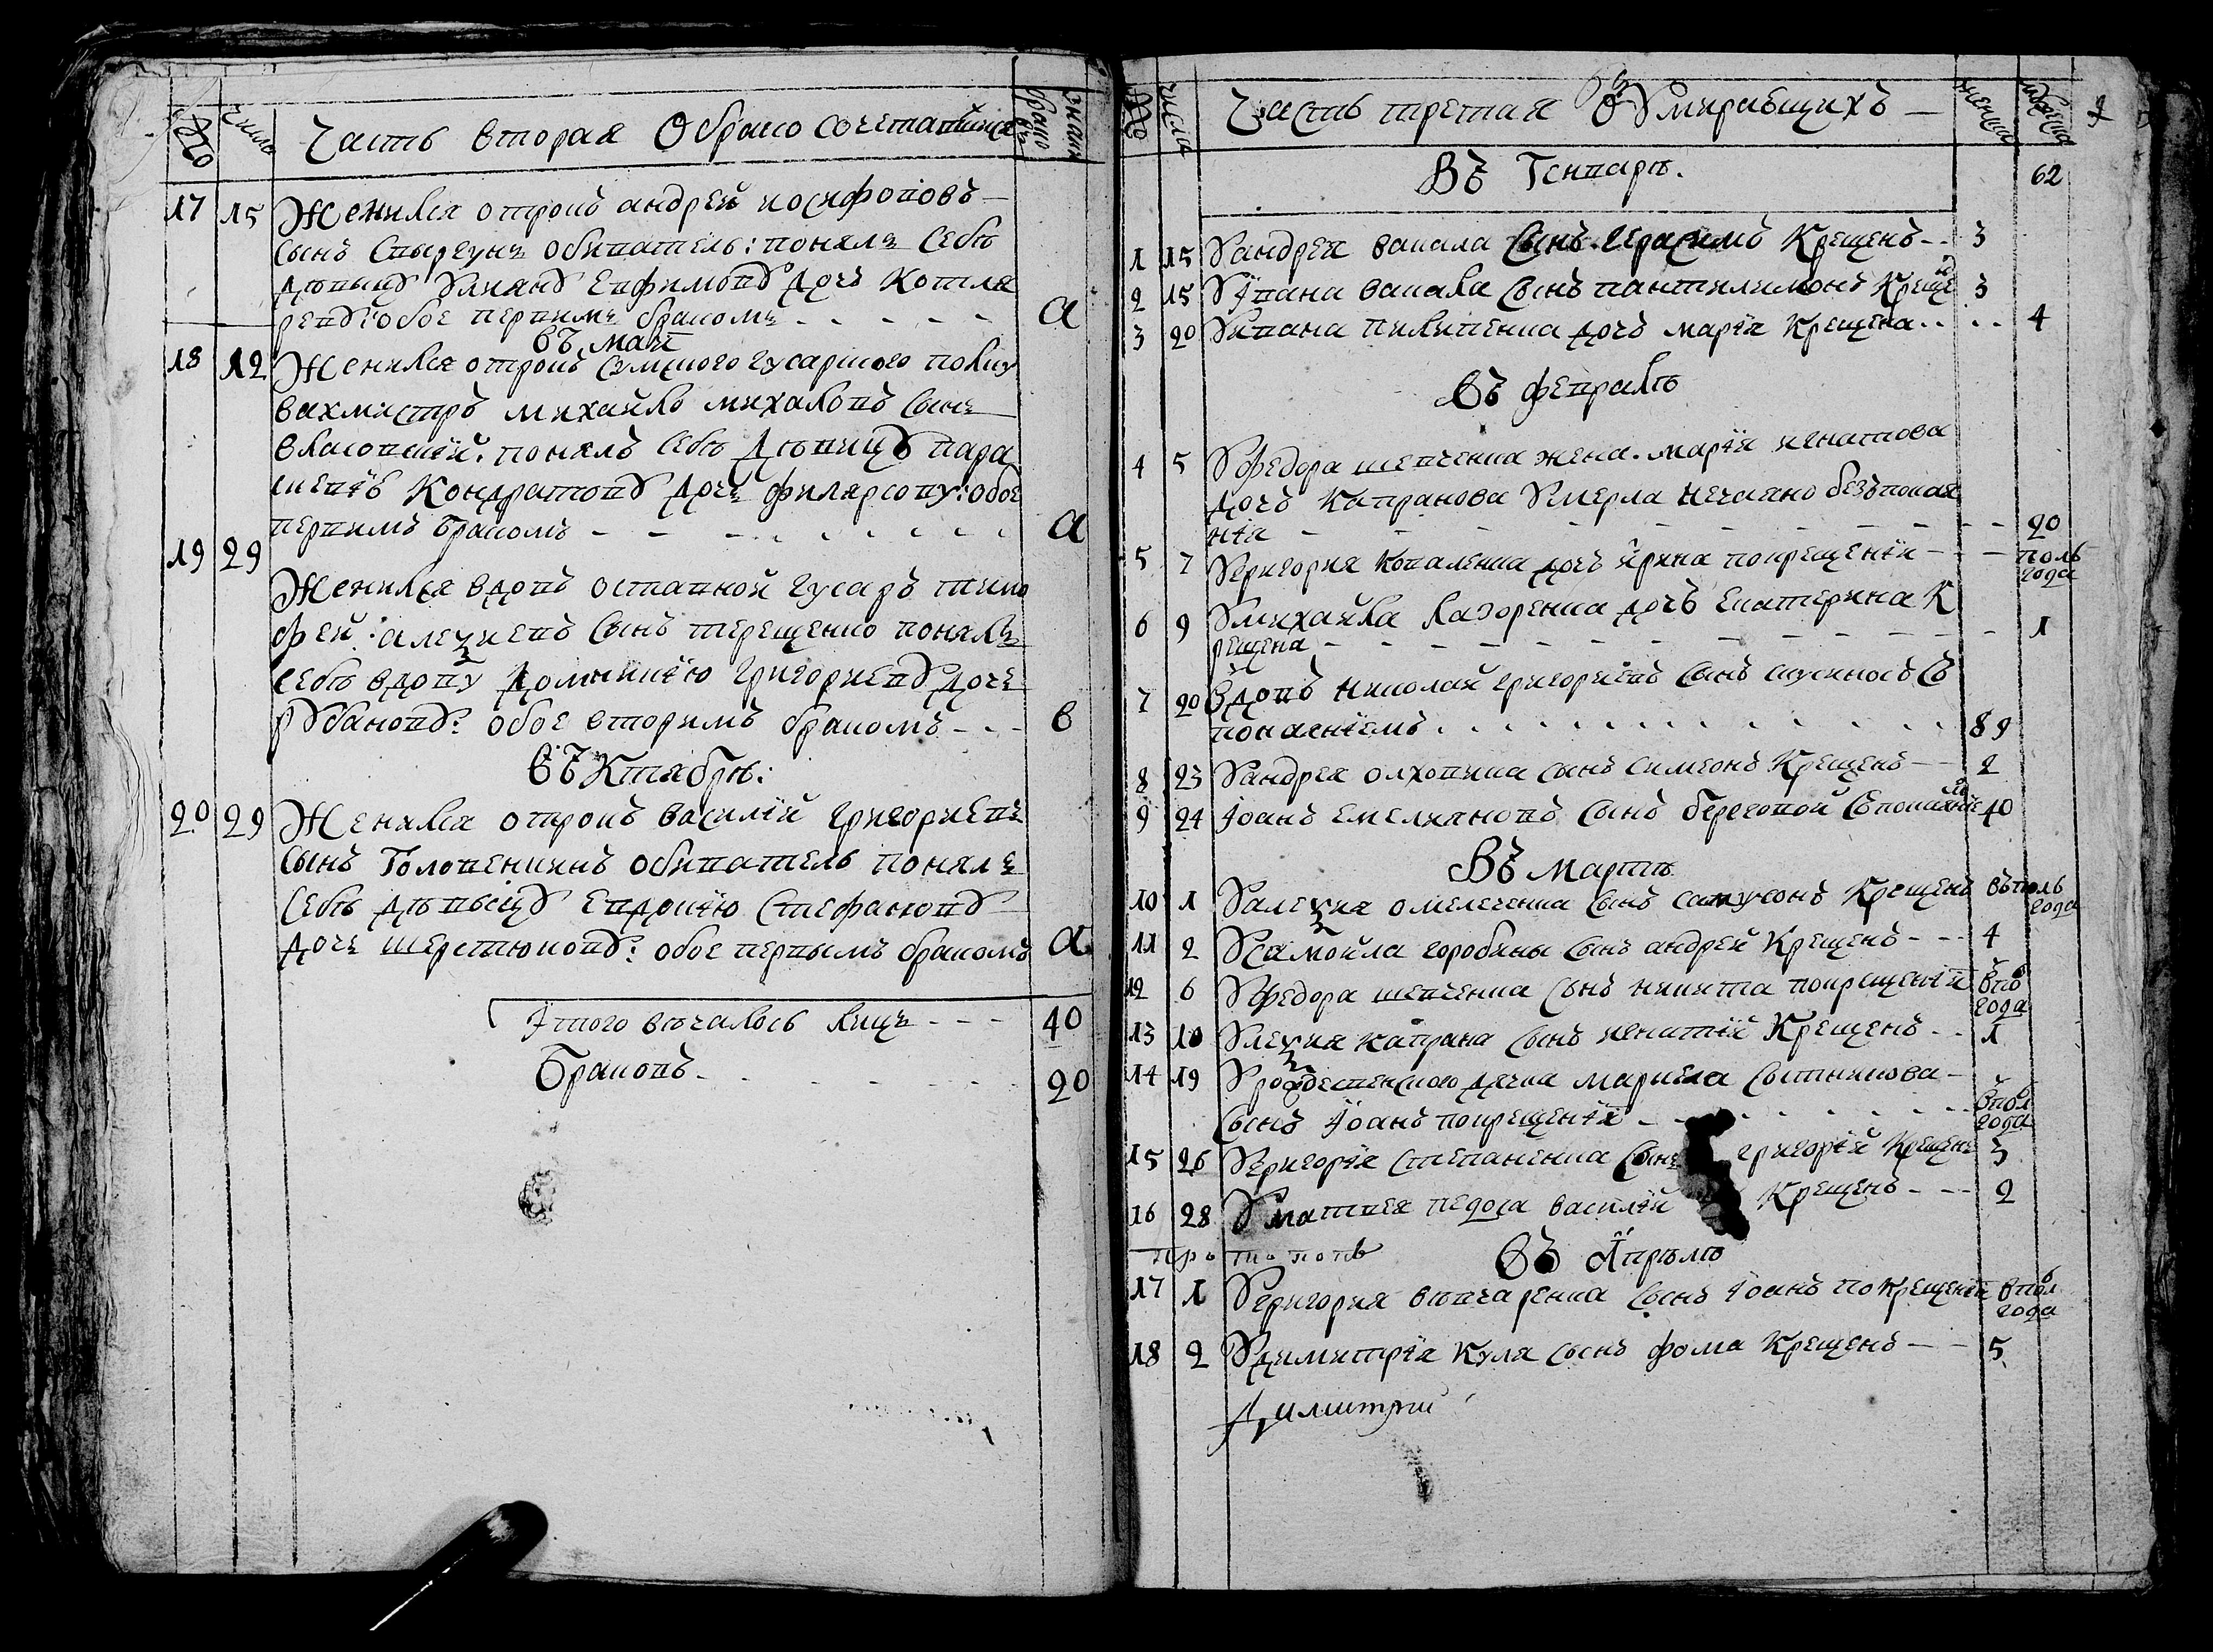 число Часть вторая О брако сочетавшихся
17 15 Женился отрокъ андрей иосифоповъ
сынъ Спыргунъ обыватель: понялъ себѣ
дѣвицу Улиану Евфимову дочъ Котля
реву: обое первимъ бракомъ - - - - - а
въ маи
18 12 Женился отрокъ сумского гусарского полку
вахмистръ михайлъ михаловъ сынъ
власовскій: понялъ себѣ дѣвицу пара
скевію Кондратову дочъ филярсову: обое
первимъ бракомъ - - - - - - а
19 29
Женился вдовъ оставной гусаръ тимо
фей: алеѯиевъ сынъ терещенко понялъ
себѣ вдову домникію григориеву дочъ
рубанову: обое вторимъ бракомъ - - - в
въ Ктябрѣ:
20 29 Женился отрокъ василій григориевъ
сынъ Головенкинъ обыватель понялъ
себѣ дѣвыцу евдокію стефанову
дочъ шерстюкову: обое первымъ бракомъ а
Ітого вѣчалось лицъ - - - 40
Браковъ - - - - - - 20
число Часть третая О Умиравщихъ
Въ Генварѣ. 62
1 15 У андрея вакала сынъ герасимъ Крещенъ - - 3
2 15 У Івана вакала сынъ пантилимонъ Крещенъ 3
3 20 У ивана пилипенка дочъ марія Крещена . . . . 4
въ февралѣ
4 5 У федора шевченка жена. марія игнатова
дочъ Капранова Умерла нечаяно безъпокая
нія - - - - - - - 20
5 7 У григория коваленка дочъ ирина покрещеніи - - - полъ
года
6 9 У михайла лазоренка дочъ екатерина К
рещена - - - - - - - 1
7 20 Вдовъ николай григориевъ сынъ скусикосъ Съ
покаеніемъ . . . . . . . . 89
8 23 У андрея олховика сынъ симеонъ Крещенъ - - 2
9 24 Іоанъ емелияновъ сынъ береговой съпокаяніемъ 40
Въ мартѣ
10 1 У алеѯия омелеченка сынъ сампсонъ Крещенъ въполъ
года
11 2 У самойла горобыны сынъ андрей Крещенъ - - - 4
12 6 У федора шевченка сынъ никита покрещеніи впол
года
13 10 У алеѯия капрана сынъ игнатій Крещенъ - - 1
14 19 У рождественского дячка маркела сытникова -
сынъ Іоанъ покрещеніи - - - - - - - впол
года
15 26 У григорія степаненка сынъ григорій Крещенъ 3
16 28 У матвея педоса василій Крещенъ - - - 2
протопопъ въ Апрѣлѣ
17 1 У григория вѣвчаренка сынъ Іоанъ покрещеніи впол
года
18 2 У димитрія Куля сынъ фома Крещенъ - - 5
Димитрий